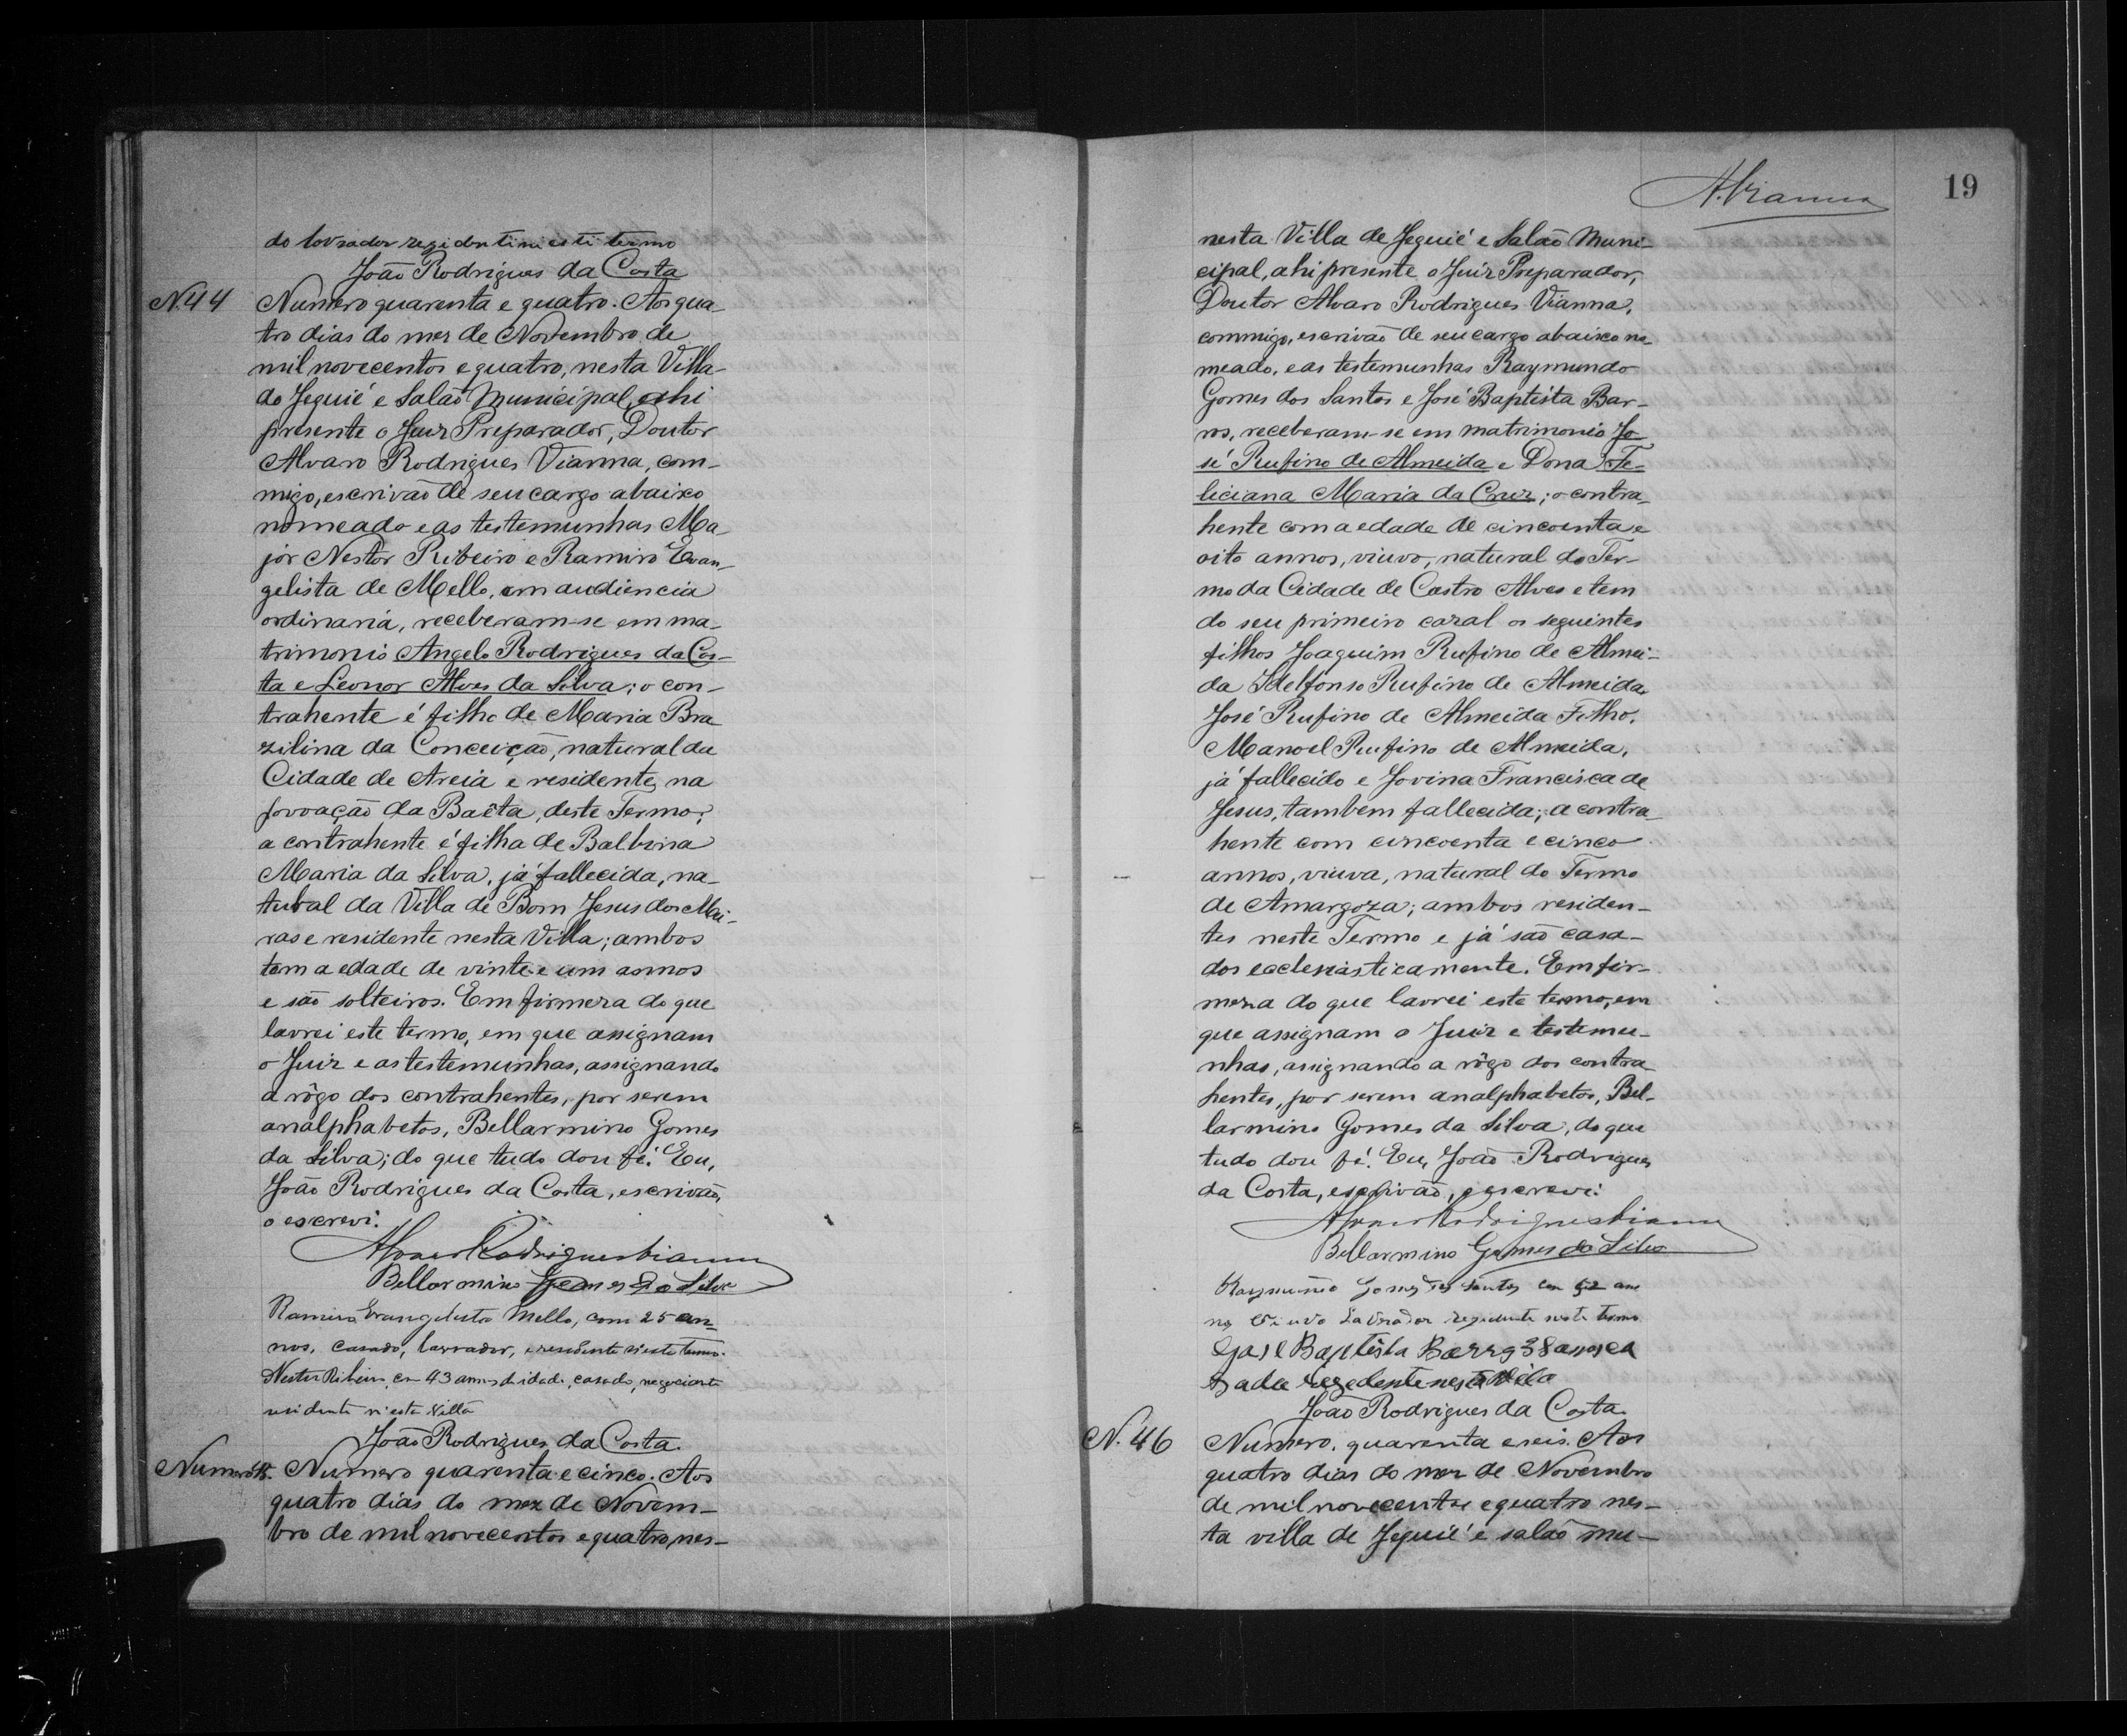 do lavrador rezidentini esti termo
João Rodrigues da Costa
N.44 Numero quarenta e quatro. Aos qua-
tro dias do mez de Novembro de
mil novecentos e quatro, nesta Villa
do Jequié e Salão Municipal, ahi
presente o Juiz Preparador, Doutor
Alvaro Rodrigues Vianna, com-
migo, escrivão de seu cargo abaixo
nomeado e as testemunhas Ma-
jor Nestor Ribeiro e Ramiro Evan-
gelista de Mello, em audiencia
ordinaria, receberam-se em ma-
trimonio Angelo Rodrigues da Cos-
ta e Leonor Alves da Silva; o con-
trahente é filho de Maria Bra
zilina da Conceição, natural da
Cidade de Areia e residente na
povoação da Baêta, deste Termo;
a contrahente é filha de Balbina
Maria da Silva, já fallecida, na-
tural da Villa de Bom Jesus dos Mei-
ras e residente nesta Villa; ambos
tem a edade de vinte e um annos
e são solteiros. Em firmeza do que
lavrei este termo, em que assignam
o Juiz e as testemunhas, assignando
a rôgo dos contrahentes, por serem
analphabetos, Bellarmino Gomes
da Silva; do que tudo dou fé. Eu,
João Rodrigues da Costa, escrivão,
o escrevi.
Alvaro Rodrigues Vianna
Bellarmino Gomes da Silva
Ramiro Evangelista Mello, com 25 an-
nos, casado, lavrador, e residente n'este termo.
Nestor Ribeiro, com 43 annos de idade, casado, negociante
residente n'esta Villa
João Rodrigues da Costa.
Numero 45. Numero quarenta e cinco. Aos
quatro dias do mez de Novem-
bro de mil novecentos e quatro, nes-
A. Vianna
19
nesta Villa de Jequié e Salão Muni-
cipal, ahi presente o Juiz Preparador,
Doutor Alvaro Rodrigues Vianna,
commigo, escrivão de seu cargo abaixo no-
meado, e as testemunhas Raymundo
Gomes dos Santos e José Baptista Bar-
ros, receberam-se em matrimonio Jo
sé Rufino de Almeida e Dona Fe-
liciana Maria da Cruz; o contra-
hente com a edade de cincoenta e
oito annos, viuvo, natural do Ter-
mo da Cidade de Castro Alves e tem
do seu primeiro cazal os seguintes
filhos Joaquim Rufino de Almei-
da Idelfonso Rufino de Almeida,
José Rufino de Almeida Filho,
Manoel Rufino de Almeida,
já fallecido e Jovina Francisca de
Jesus, tambem fallecida; a contra
hente com cincoenta e cinco
annos, viuva, natural do Termo
de Amargoza; ambos residen-
tes neste Termo e já são casa-
dos ecclesiasticamente. Em fir-
meza do que lavrei este termo, em
que assignam o Juiz e testemu-
nhas, assignando a rôgo dos contra
hentes, por serem analphabetos, Bel-
larmino Gomes da Silva, do que
tudo dou fé. Eu, João Rodrigues
da Costa, escrivão, o escrevi.
Alvaro Rodrigues Vianna
Bellarmino Gomes da Silva
Raymundo Gomes dos Santos com 52 ann
nos Viuvo Lavrador rezidente neste termo
José Baptista Barros 38 annos ca
zado rezedente nesta Vila
João Rodrigues da Costa.
N. 46 Numero, quarenta e seis. Aos
quatro dias do mez de Novembro
de mil novecentos e quatro nes-
ta villa de Jequié e salão mu-